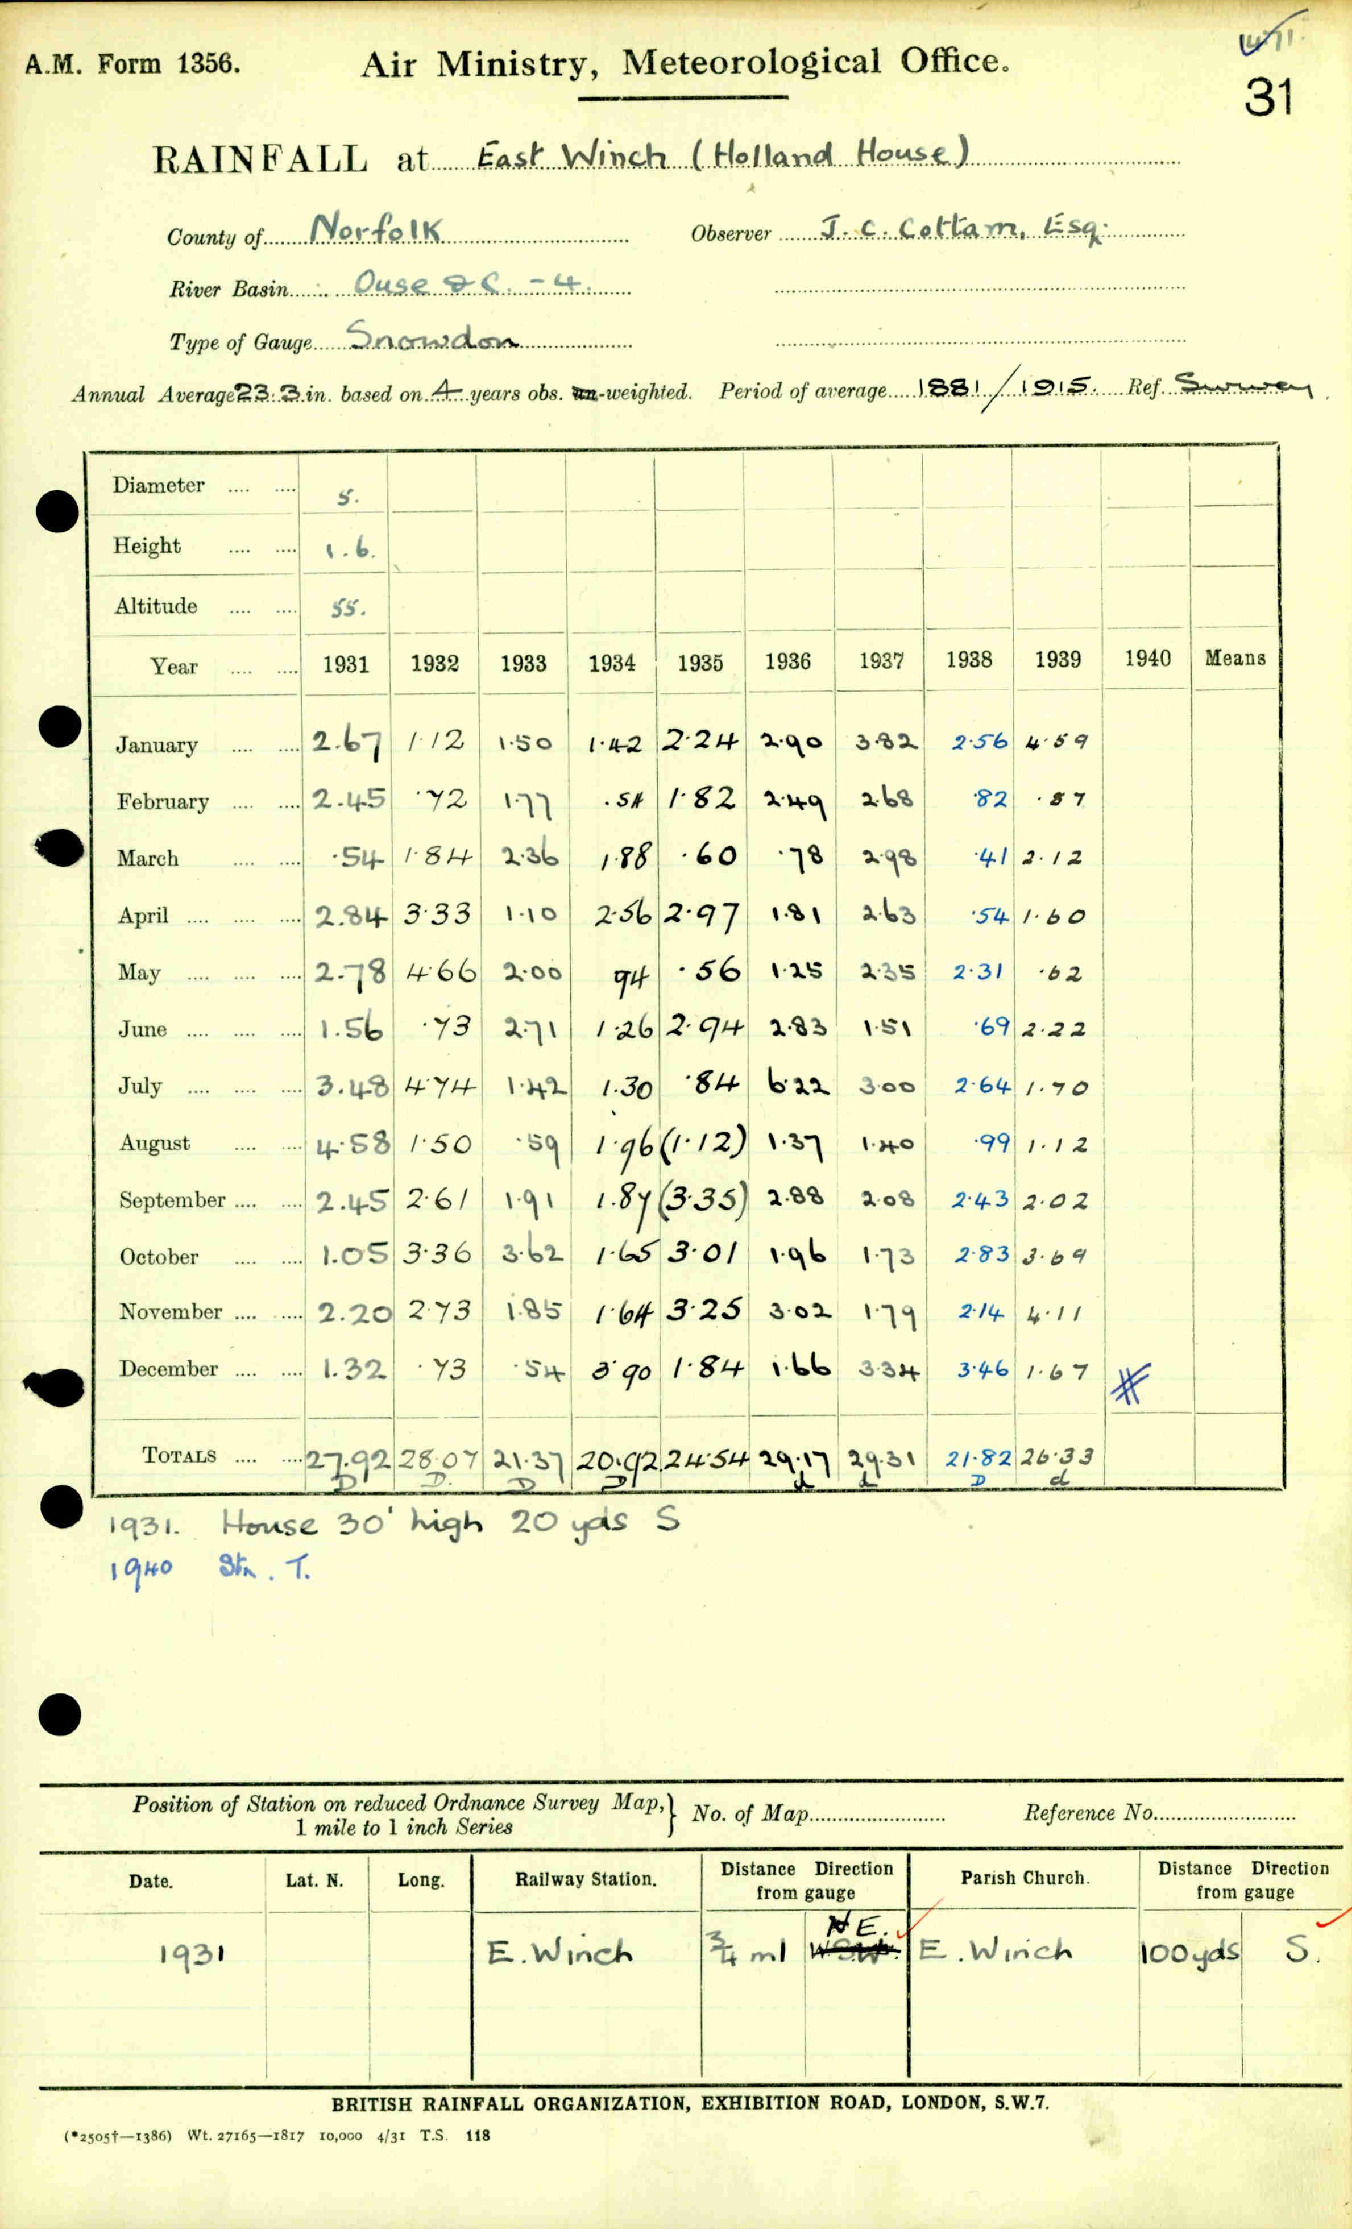 A.M. Form 1356. Air Ministry, Meteorological Office.
31
RAINFALL at East Winch (Holland House)
County of Norfolk Observer J. C. Cottam, Esq.
River Basin Ouse &c. - 4.
Type of Gauge Snowdon
Annual Average 23.3 in. based on 4 years obs. un-weighted. Period of average 1881/1915. Ref. Survey
Diameter 5.
Height 1.6.
Altitude 55.
Year 1931 1932 1933 1934 1935 1936 1937 1938 1939 1940 Means
January 2.67 1.12 1.50 1.42 2.24 2.90 3.82 2.56 4.59
February 2.45 .72 1.77 .54 1.82 2.49 2.68 .82 .87
March .54 1.84 2.36 1.88 .60 .78 2.98 .41 2.12
April 2.84 3.33 1.10 2.56 2.97 1.81 2.63 .54 1.60
May 2.78 4.66 2.00 94 .56 1.25 2.35 2.31 .62
June 1.56 .73 2.71 1.26 2.94 2.83 1.51 .69 2.22
July 3.48 4.74 1.42 1.30 .84 6.22 3.00 2.64 1.70
August 4.58 1.50 .59 1.96 (1.12) 1.37 1.40 .99 1.12
September 2.45 2.61 1.91 1.87 (3.35) 2.88 2.08 2.43 2.02
October 1.05 3.36 3.62 1.65 3.01 1.96 1.73 2.83 3.69
November 2.20 2.73 1.85 1.64 3.25 3.02 1.79 2.14 4.11
December 1.32 .73 .54 3.90 1.84 1.66 3.34 3.46 1.67 #
TOTALS 27.92 28.07 21.37 20.92 24.54 29.17 29.31 21.82 26.33
D D. D D d d D d
1931. House 30' high 20 yds S
1940 Stn. T.
Position of Station on reduced Ordnance Survey Map, } No. of Map Reference No.
1 mile to 1 inch Series
Date. Lat. N. Long. Railway Station. Distance Direction from gauge Parish Church. Distance Direction from gauge
N E.
1931 E. Winch 3/4 ml W.S.W. E. Winch 100 yds S.
BRITISH RAINFALL ORGANIZATION, EXHIBITION ROAD, LONDON, S.W.7.
(*2505†—1386) Wt. 27165—1817 10,000 4/31 T.S. 118